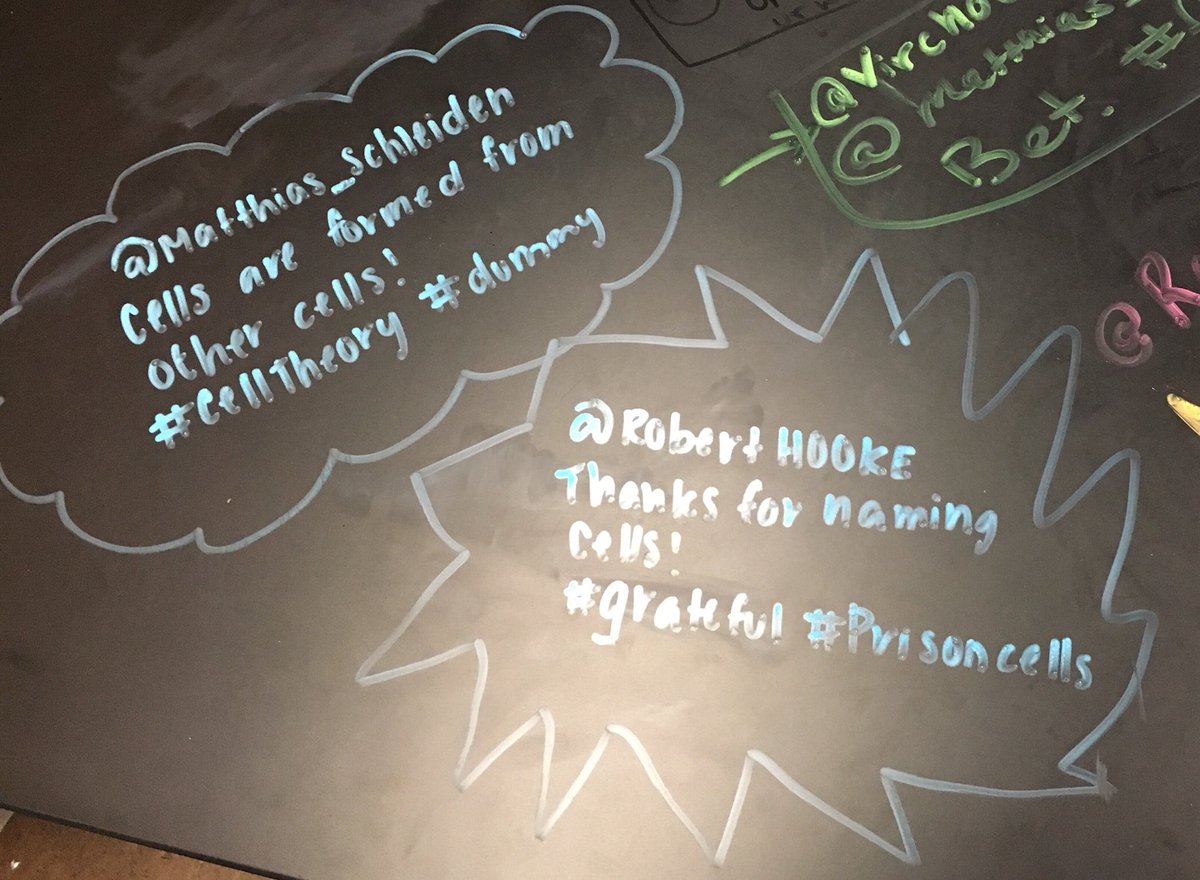 @Matthias_Schleiden
Cells are formed from
other cells!
#CellTheory #dummy
@Robert HOOKE
Thanks for naming
Cells!
#grateful #Prisoncells
@
Bet.
#
@